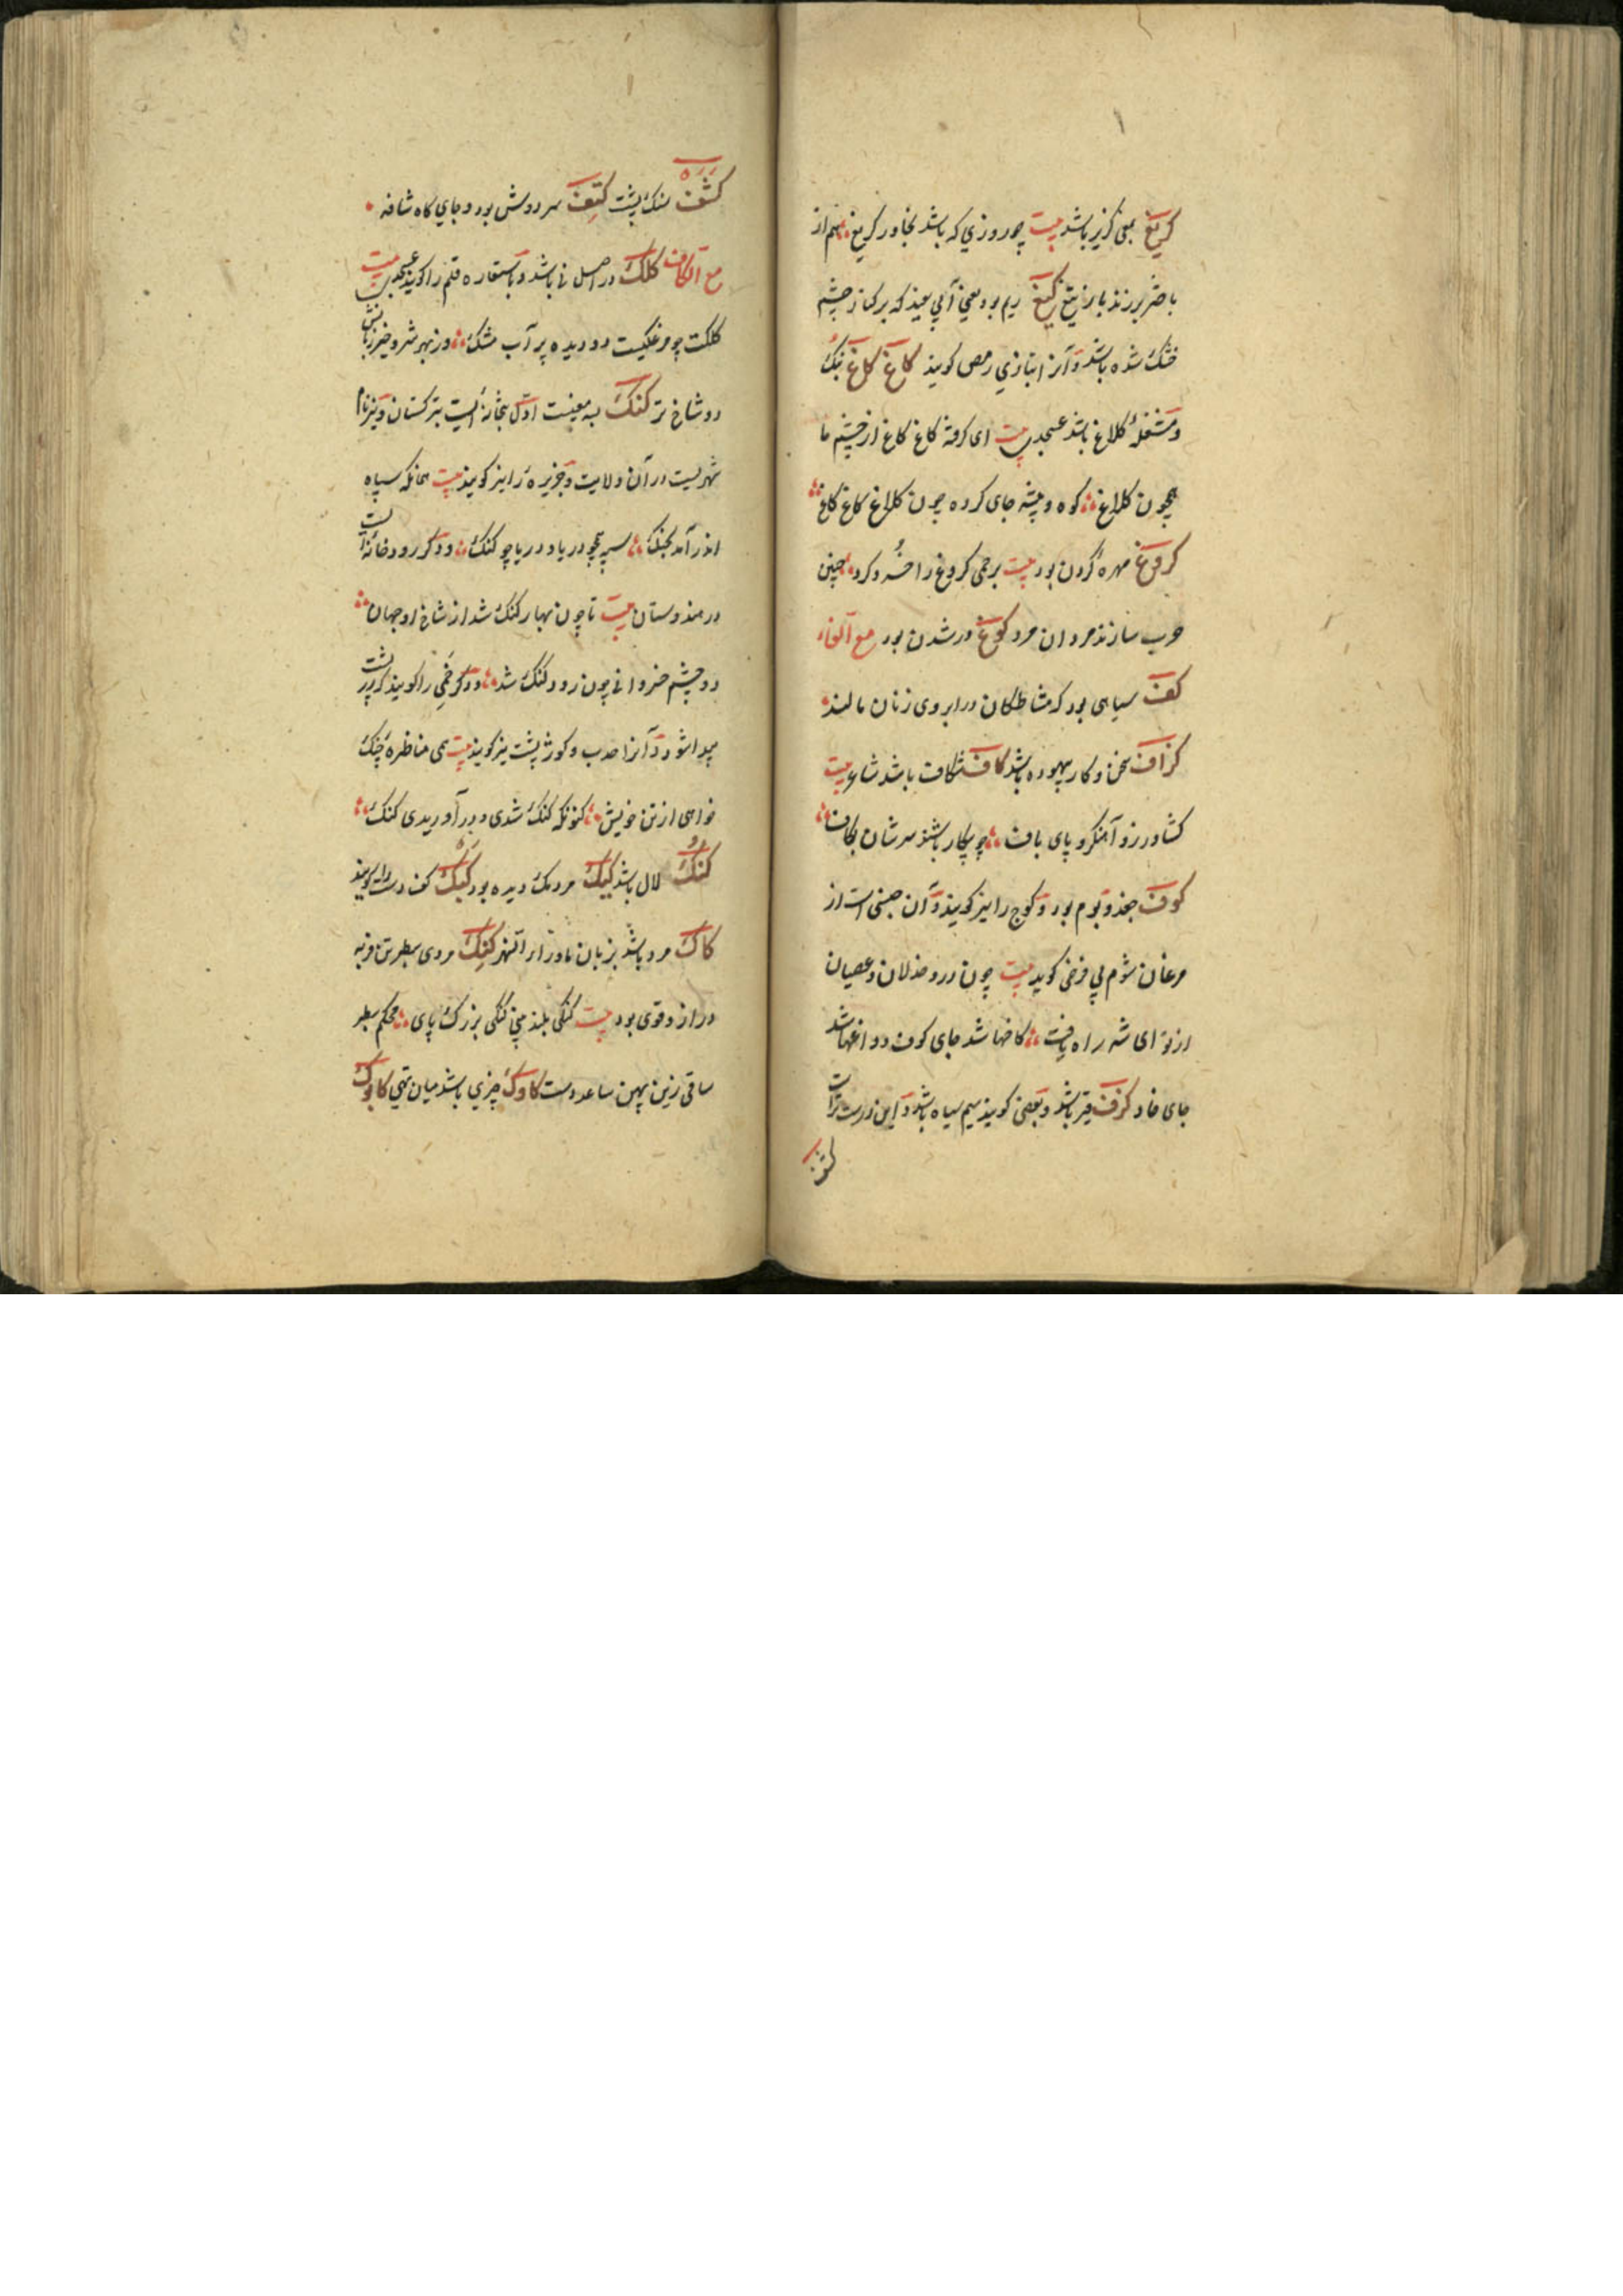 کریغ بمعنی کریز باشد بیت چو روزی که باشد بخاور کریغ هم از
باختر برزند باز تیغ کیغ ریم بود یعنی آبی سفید که بر کنار چشم
خشک شده باشد و آنرا بتازی رمص گویند کاغ کاغ بانک
و مشغله کلاغ باشد عسجدی بیت ای گرفته کاغ کاغ از خشم ما
همچون کلاغ کوه و بیشه جای کرده چون کلاغ کاغ کاغ
کروغ مهره گردن بود بیت برخمی کروغ را خرد کرد چنین
حرب سازند مردان مرد کوغ ورشدن بود مع الفاء
کف سیاهی بود که مشاطگان در ابروی زنان مالند
کزاف سخن و کار بیهوده باشد کاف شکاف باشد شاعر بیت
کشاورز و آهنگر و پای باف چو بیکار باشند سرشان بکاف
کوف جغد و بوم بود و کوچ را نیز گویند و آن جنسی است از
مرغان شوم پی فرخی گوید بیت چون درو خذلان و عصیان
از تو ای شه راه یافت کاخها شد جای کوف و باغها شد
جای خاد کرف قیر باشد و بعضی گویند سیم سیاه باشد و این درست تر است
کشف
کشف سنک پشت کتف سر دوش بود و جای کاه شانه
مع الکاف کلک در اصل نی باشد و باستعاره قلم را گویند عسجدی بیت
کلکت چو مرغکیست دو دیده پر آب مشک وز بهر خیر و شر زبانش
دو شاخ تر کنک بسه معنیست اول بتخانه ایست بترکستان و نیز نام
شهریست در آن ولایت و جزیره را نیز گویند بیت همانکه سپاه
اندر آمد بجنک سپه همچو دریا و دریا چو کنک و دیگر رودخانه است
در هندوستان بیت تا چون بهار کنک شد از شاخ او جهان
دو چشم خسروانی چون رود کنک شد و دیگر خمی را گویند که در پشت
پیدا شود و آنرا حدب و کوژ پشت نیز گویند بیت همی مناظره جنک
خواهی از تن خویش کنونکه کنک شدی و بر آوریدی کنک
کنک لال باشد کیک مردمک دیده بود کبک کف دست را گویند
کاک مرد باشد بزبان ماوراء النهر کنک مردی سطبر تن فربه
دراز و قوی بود بیت کنکی بلند بینی کنکی بزرک پای محکم سطبر
ساقی زین پهن ساعد دست کاوک چیزی باشد میان تهی کابوک